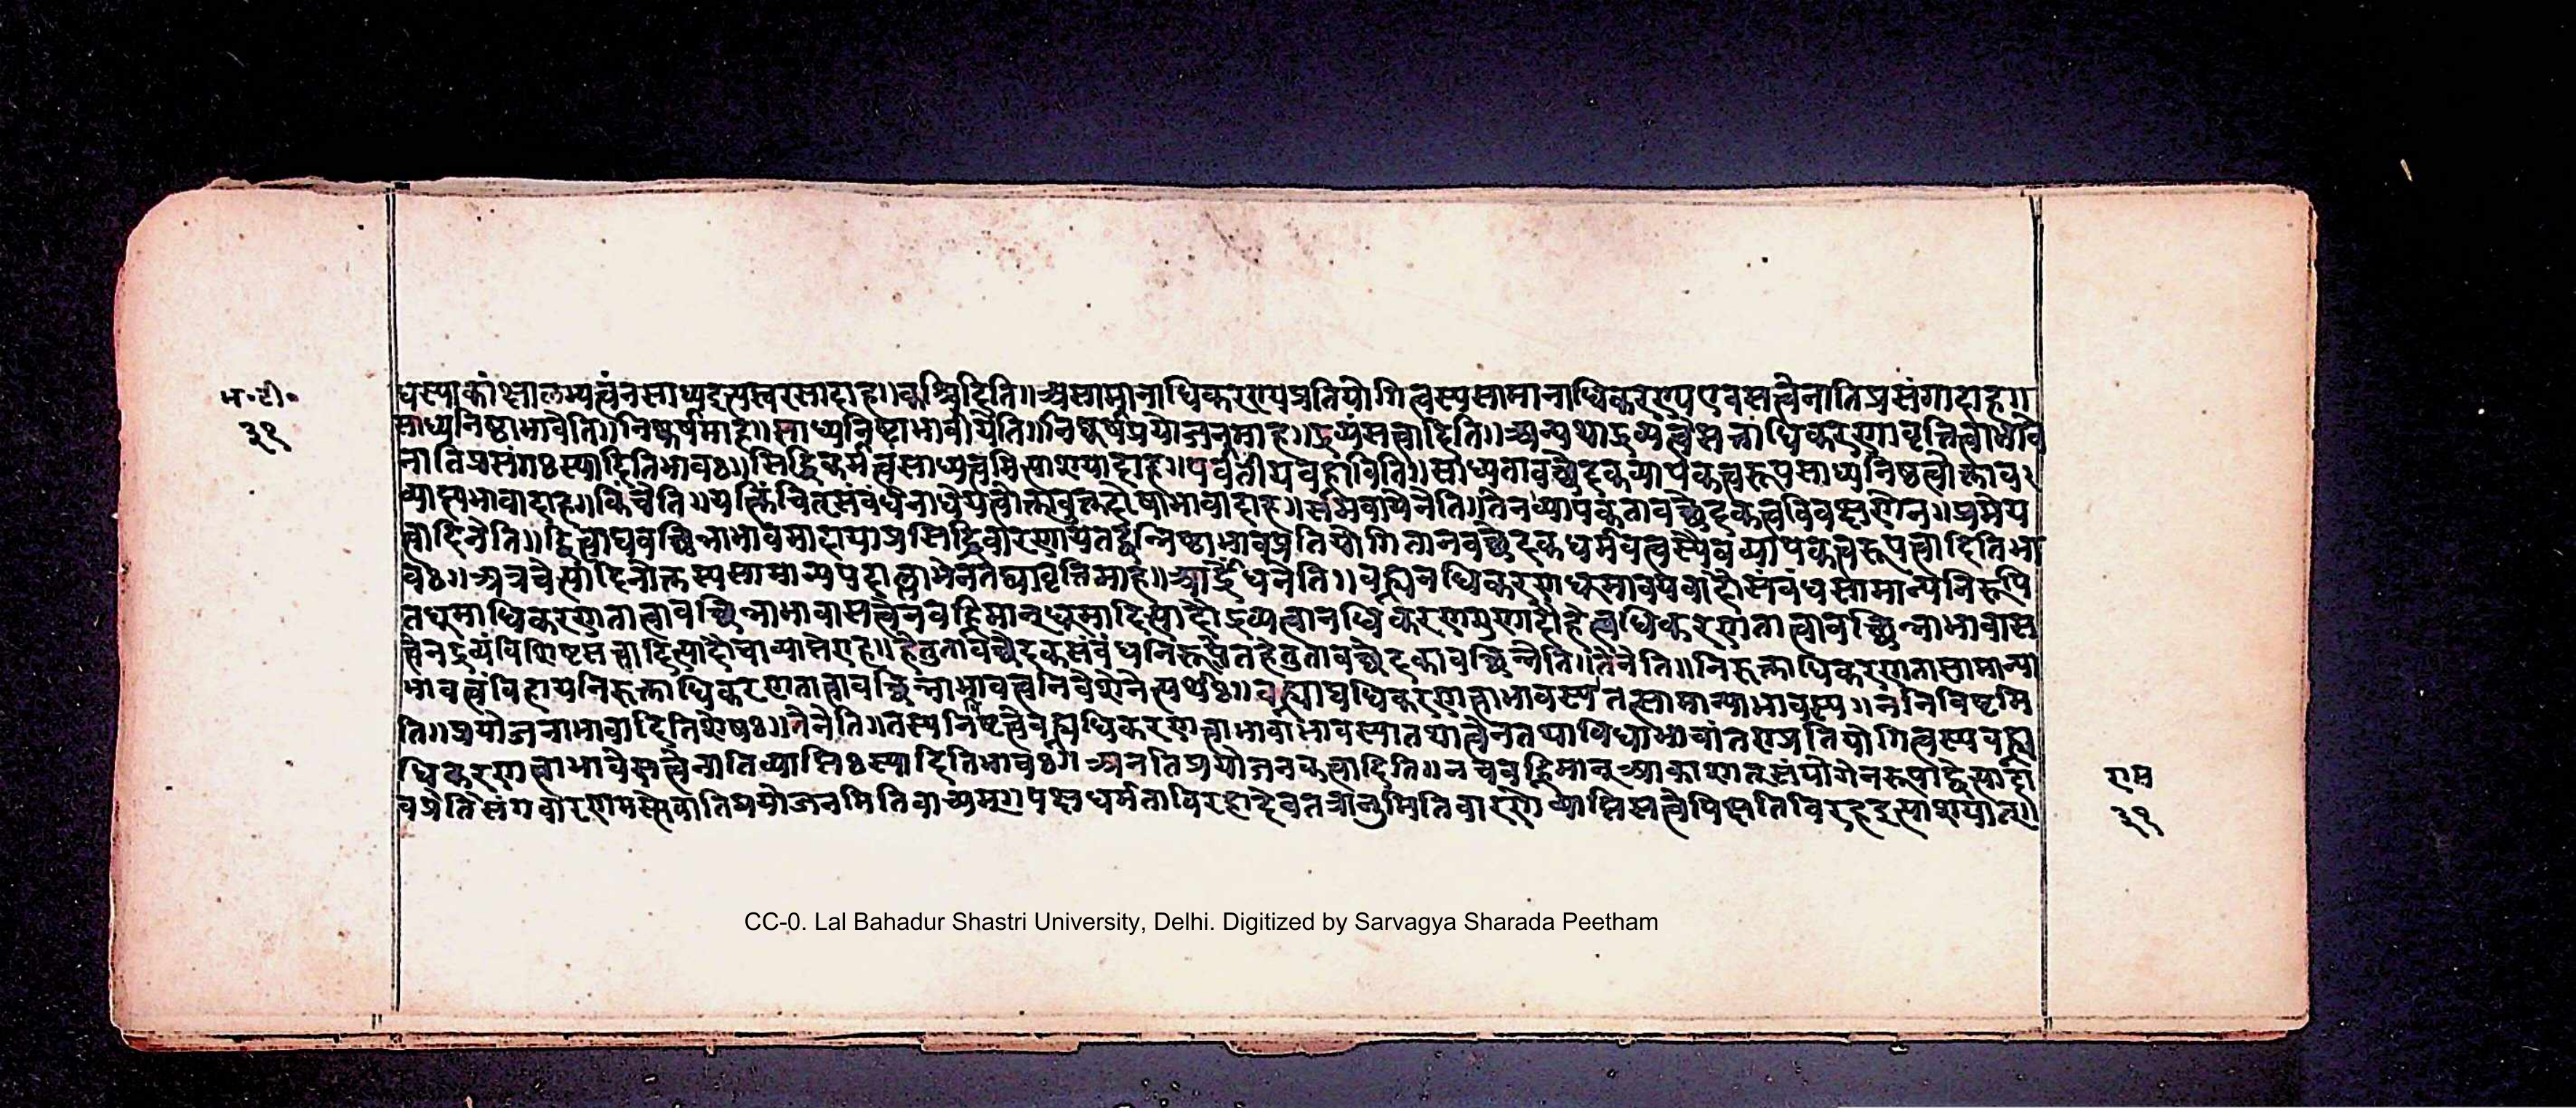 म॰टी॰
३१
धस्याकांक्षालभ्यत्वंनसाध्यइत्यस्वरसादाह॥कश्चिदिति॥असामानाधिकरण्यप्रतियोगित्वस्यसामानाधिकरण्यएवसत्वेनातिप्रसंगादाह॥
साध्यनिष्ठाभावेति॥निष्कर्षमाह॥साध्यनिष्ठाभावीयेति॥निष्कर्षप्रयोजनमाह॥द्रव्यंसत्वादिति॥अन्यथाद्रव्यत्वेसत्ताधिकरणावृत्तित्वाभावे
नातिप्रसंगःस्यादितिभावः॥सिद्धिकर्मत्वसाध्यत्वमित्याशयादाह॥पर्वतीयवह्नाविति॥साध्यतावच्छेदकव्यापकत्वरूपसाध्यनिष्ठत्वोक्ताव
व्याप्त्यभावादाह॥किंचेति॥यत्किंचित्संबंधेनाधेयत्वोक्तावुक्तदोषाभावादाह॥समवायेनेति॥तेनव्यापकतावच्छेदकत्वविवक्षणेन॥प्रमेय
त्वादिनेति॥द्वित्वाद्यवच्छिन्नाभावमादायाप्रसिद्धिवारणायतद्वन्निष्ठाभावप्रतियोगितानवच्छेदकधर्मवत्वस्यैवव्यापकत्वरूपत्वादितिभा
वः॥अत्रचेत्यादिनोक्तस्यसामान्यपदाल्लाभेनतद्व्यावृत्तिमाह॥आर्द्रेंधनेति॥वह्न्यनधिकरणधूमावयवादौसंबंधसामान्यनिरूपि
तधूमाधिकरणतात्वावच्छिन्नाभावासत्वेनवह्निमान्धूमादित्यादौद्रव्यत्वानधिकरणगुणादौहेत्वधिकरणतात्वावच्छिन्नाभावास
त्वेनद्रव्यंविशिष्टसत्वादित्यादौचाव्याप्तेराह॥हेतुतावच्छेदकसंबंधनिरूपितहेतुतावच्छेदकावच्छिन्नेति॥तेनेति॥निरुक्ताधिकरणतासामान्या
भावत्वंविहायनिरुक्ताधिकरणतात्वावच्छिन्नाभावत्वनिवेशेनेत्यर्थः॥वह्न्याद्यधिकरणत्वाभावस्यतत्सामान्याभावस्य॥ननिविष्टमि
ति॥प्रयोजनाभावादितिशेषः॥तेनेति॥तस्यनिविष्टत्वेवह्न्यधिकरणत्वाभावाभावस्यातथात्वेनतथाविधाभावांतरप्रतियोगित्वस्यवह्न्य
धिकरणत्वाभावेसत्वेनातिव्याप्तिःस्यादितिभावः॥अनतिप्रयोजनकत्वादिति॥नचवह्निमान्आकाशात्संयोगेनरूपाद्वेत्यादा
वप्रेतिसंगवारणमस्यैवातिप्रयोजनमितिवाच्यम्॥पक्षधर्मताविरहादेवतत्रानुमितिवारणेव्याप्तिसत्वेपिक्षतिविरहइत्याशयात्॥
राम
३१
CC-0. Lal Bahadur Shastri University, Delhi. Digitized by Sarvagya Sharada Peetham